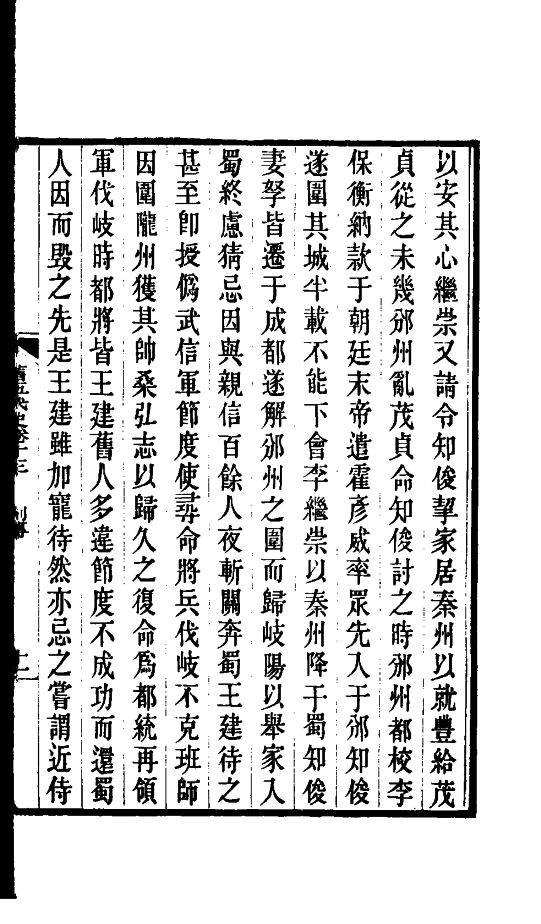 以安其心繼崇又請令知俊挈家居秦州以就豐給茂
貞從之未幾邠州亂茂貞命知俊討之時邠州都校李
保衡納款于朝廷末帝遣霍彥威率眾先入于邠知俊
遂圍其城半載不能下會李繼崇以秦州降于蜀知俊
妻孥皆遷于成都遂解邠州之圍而歸岐陽以舉家入
蜀終慮猜忌因與親信百餘人夜斬關奔蜀王建待之
甚至卽授僞武信軍節度使尋命將兵伐岐不克班師
因圍隴州獲其帥桑弘志以歸久之復命爲都統再領
軍伐岐時都將皆王建舊人多違節度不成功而還蜀
人因而毀之先是王建雖加寵待然亦忌之嘗謂近侍
舊五代史卷十三 列傳 十一